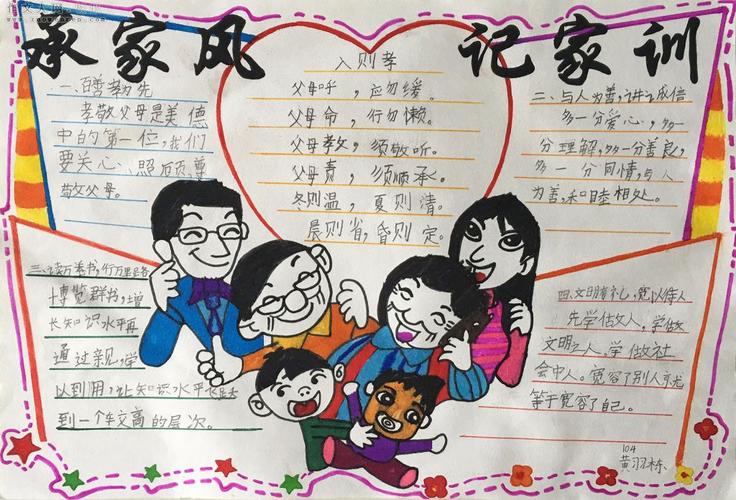 承家风 记家训
一、百善孝为先
孝敬父母是美德
中的第一位,我们
要关心、照顾、尊
敬父母。
入则孝
父母呼,应勿缓。
父母命,行勿懒。
父母教,须敬听。
父母责,须顺承。
冬则温,夏则凊。
晨则省,昏则定。
二、与人为善,讲诚信
多一分爱心,多一
分理解,多一分善良,
多一分同情,与人
为善,和睦相处。
三、读万卷书,行万里路
博览群书,增
长知识水平再
通过亲见,学
以到用,让知识水平
到一个较高的层次。
四、文明有礼,宽以待人
先学做人,学做
文明之人。学做社
会中人。宽容了别人就
等于宽容了自己。
104
黄羽栋